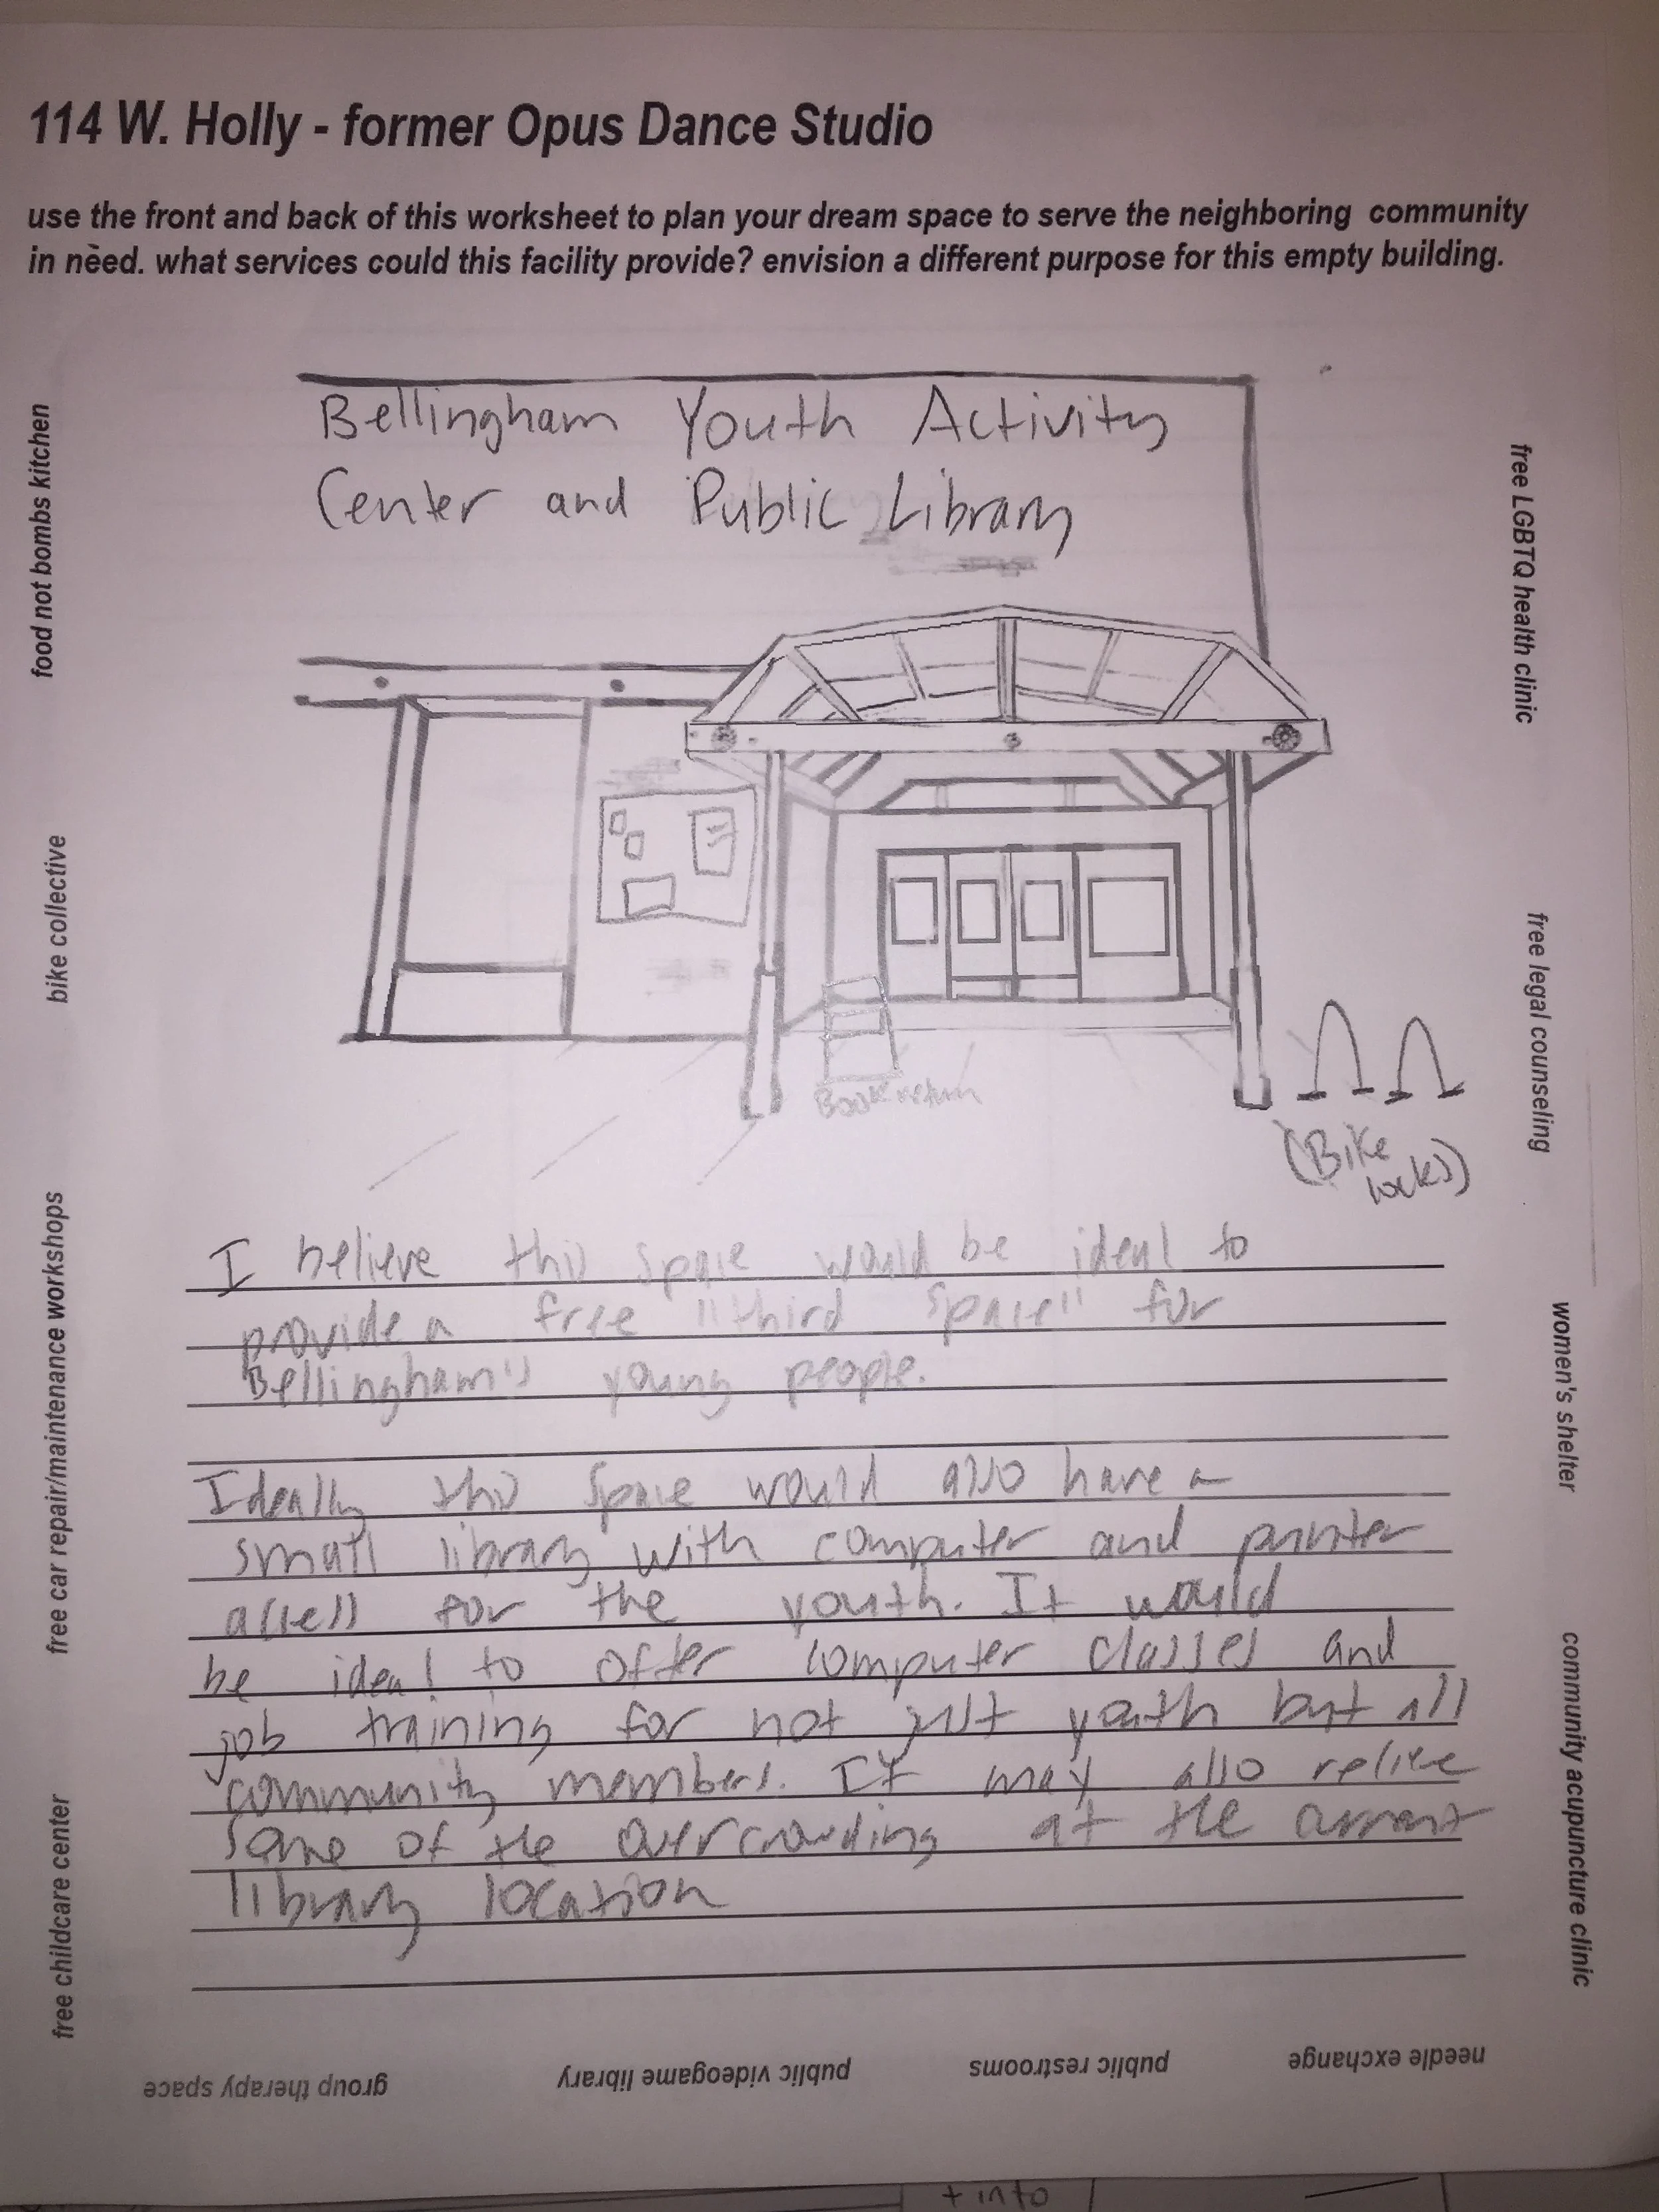 114 W. Holly - former Opus Dance Studio
use the front and back of this worksheet to plan your dream space to serve the neighboring community
in need. what services could this facility provide? envision a different purpose for this empty building.
Bellingham Youth Activity
Center and Public Library
Book return
(Bike
locks)
I believe this space would be ideal to
provide a free "third space" for
Bellingham's young people.
Ideally this space would also have a
small library with computer and printer
access for the youth. It would
be ideal to offer computer classes and
job training for not just youth but all
community members. It may also relive
some of the overcrowding at the current
library location
food not bombs kitchen
bike collective
free car repair/maintenance workshops
free childcare center
free LGBTQ health clinic
free legal counseling
women's shelter
community acupuncture clinic
group therapy space
public videogame library
public restrooms
needle exchange
+ into